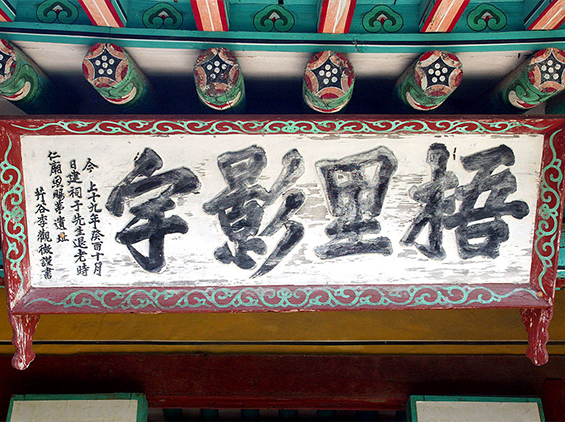 梧里影宇
今 上十九年癸酉十月
日建祠于先生退老時
仁廟恩賜第遺址
芹谷李觀徵謹書